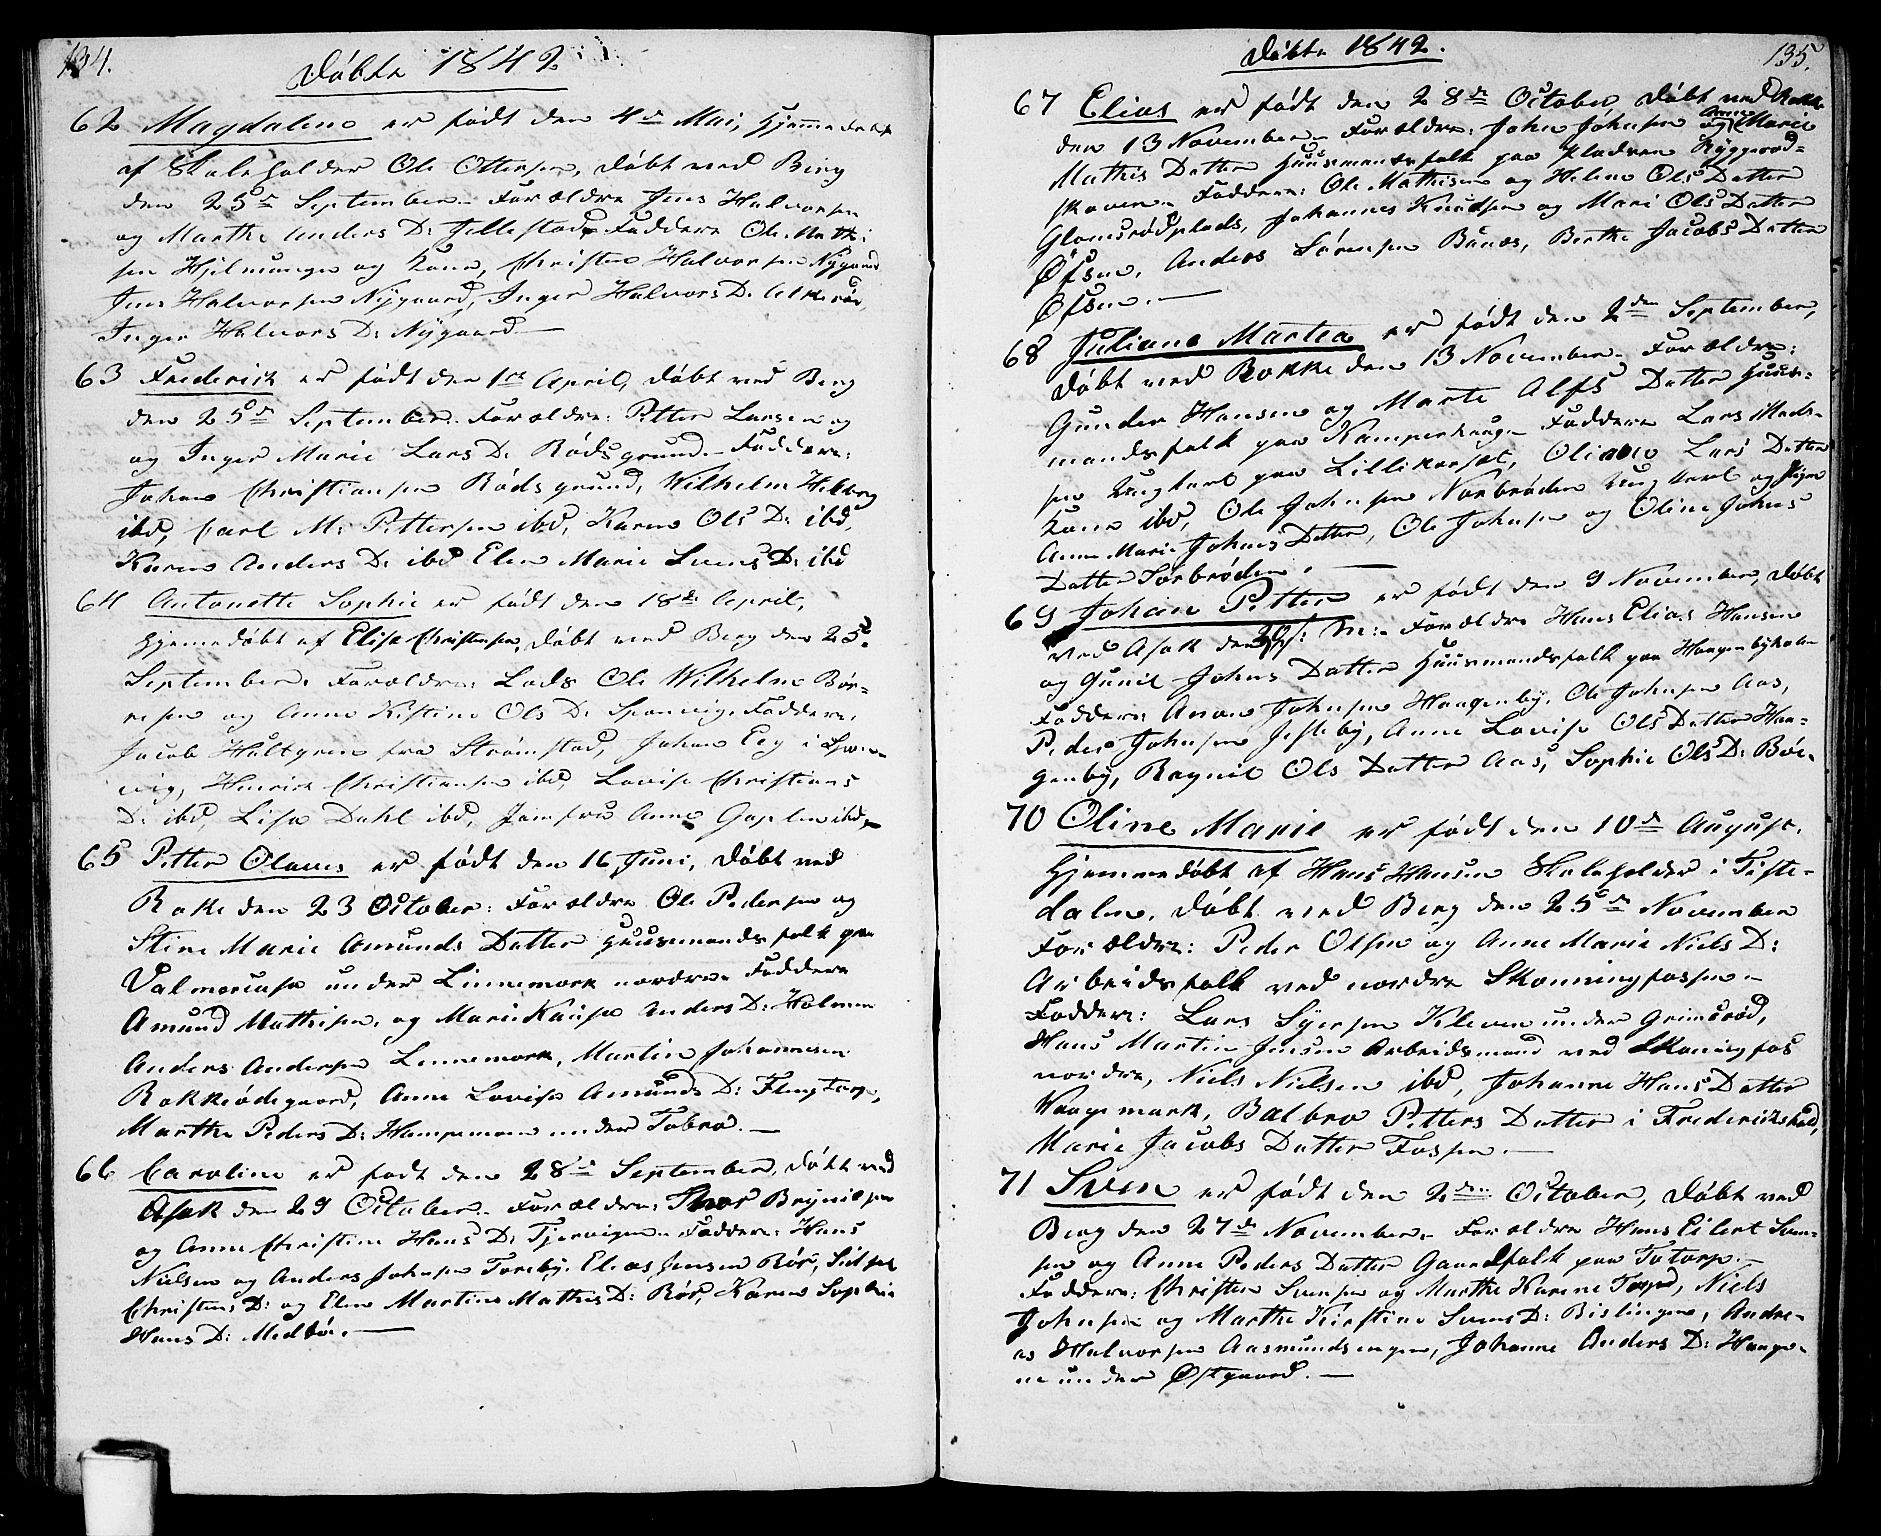 134.
Døbte 1842
62 Magdalene er født den 4de Mai, Hjemmedøbt
af Skoleholder Ole Ottersen, døbt ved Berg
den 25de September. Forældre Jens Halvorsen
og Marthe Anders D: Jellestad. Faddere Ole Mathi-
sen Hjelmungen og Kone, Christen Halvorsen Nygaard
Jens Halvorsen Nygaard, Inger Halvors D:
Inger Halvors D: Nygaard.
63 Frederick er født den 1ste April, døbt ved Berg
den 25de September. Forældre: Petter Larsen og
og Inger Marie Lars D: Rødsgrund. Faddere:
Johan Christiansen Rødsgrund, Wilhelm
ibd, Carl M: Pettersen ibd, Karen Ols D: ibd,
Karen Anders D: ibd Elen Marie Svens D: ibd
64 Antonette Sophie er født den 18de April,
Hjemmedøbt af Elise Christensen, døbt ved Berg den 25de
September. Forældre: Lods Ole Wilhelm Bør-
resen og Anne Kistine Ols D: Sponvig. Faddere,
Jacob Hultgren fra Strømstad, Johan Eeg i Spon-
vig, Henrick Christiansen ibd, Lovise Christians
D: ibd, Lisa Dahl ibd, Jomfru Anne ibd,
65 Petter Olaves er født den 16 Juni, døbt ved
Rokke den 23 October. Forældre Ole Pedersen og
Stine Marie Amunds Datter Huusmandsfolk paa
under Linnemork nordre. Faddere
Amund Mathisen, og Marie Kaisa Anders D: Holmen
Anders Andersen Linnemork, Martin Johannesen
Rokkeødegaard, Anne Lovise Amunds D: Flengtorp,
Marthe Peders D: under Tobro.
66 Caroline er født den 28de September, døbt ved
Asak den 29 October. Forældre: Thor Brynilsen
og Anne Christine Hans D: Tjervigen. Faddere: Hans
Nielsen og Anders Johnsen Toreby. Elias Jensen Rør,
Christens D: og Elen Martine Mathis D: Rør, Karen Sophie
Hans D: Medbøe.
Døbte 1842.
135.
67 Elias er født den 28de October, Døbt ved Rokke
den 13 November. Forældre: John Johnsen og Anne Marie
Mathis Datter Huusmandsfolk paa Pladsen Ryggerød-
skoven. Faddere: Ole Mathisen og Helene Ols Datter
Glomsrødplads, Johannes Knudsen og Mari Ols Datter
Øfsen, Anders Sørensen Bånæs, Berthe Jacobs Datter
Øfsen.
68 Juliane Martea er født den 2den September,
døbt ved Rokke den 13 November. Forældre:
Gunder Hansen og Marte Alfs Datter Huus-
mandsfolk paa Kamperhaug. Faddere Lars Mads-
sen Ungkarl paa Lillikorset, Oliane Lars Datter
Kone ibd, Ole Johnsen Norbrøden Ungkarl og Pigen
Anne Marie Johns Datter, Ole Johnsen og Oline Johns
Datter Sørbrøden.
69 Johan Petter er født den 9 November, døbt
ved Asak den 20 s: M:. Forældre Hans Elias Hansen
og Gunil Johns Datter Huusmandsfolk paa Hougenbyholm
Faddere: Anne Johnsen Haugenby, Ole Johnsen Aas,
Peder Johnsen Isteby, Anne Lovise Ols Datter Hou-
genby, Ragnil Ols Datter Aas, Sophie Ols D: Bøe.
70 Oline Marie er født den 10de August.
Hjemmedøbt af Hans Hansen Skoleholder i Tiste-
dalen, døbt ved Berg den 25de November
Forældre: Peder Olsen og Anne Marie Niels D:
Arbeidsfolk ved nordre Skonningfossen.
Faddere: Lars Syversen Kleven under Grimsrød,
Hans Martin Jensen Arbeidsmand ved Skoningfos
nordre, Niels Nielsen ibd, Johanne Hans Datter
Vougemark, Balbro Petters Datter i Frederickshald,
Marie Jacobs Datter Fossen.
71 Sven er født den 2den October, døbt ved
Berg den 27de November. Forældre Hans Eilert Sven-
sen og Anne Peders Datter Gaardfolk paa Tutorp.
Faddere: Christen Svensen og Marthe Karine Torp, Niels
Johnsen og Marthe Kirstine Svens D: Bislingen, Andre-
as Halvorsen Aasmundsengen, Johanne Anders D: Houge-
ne under Østgaard.